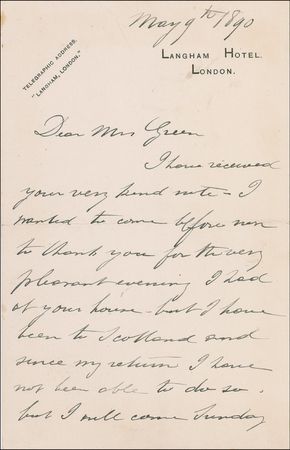 May 9th 1890
TELEGRAPHIC ADDRESS.
"LANGHAM, LONDON."
LANGHAM HOTEL.
LONDON.
Dear Mrs Green
I have received
your very kind note - I
wanted to come before now
to thank you for the very
pleasant evening I had
at your house - but I have
been to Scotland and
since my return I have
not been able to do so.
but I will come Sunday